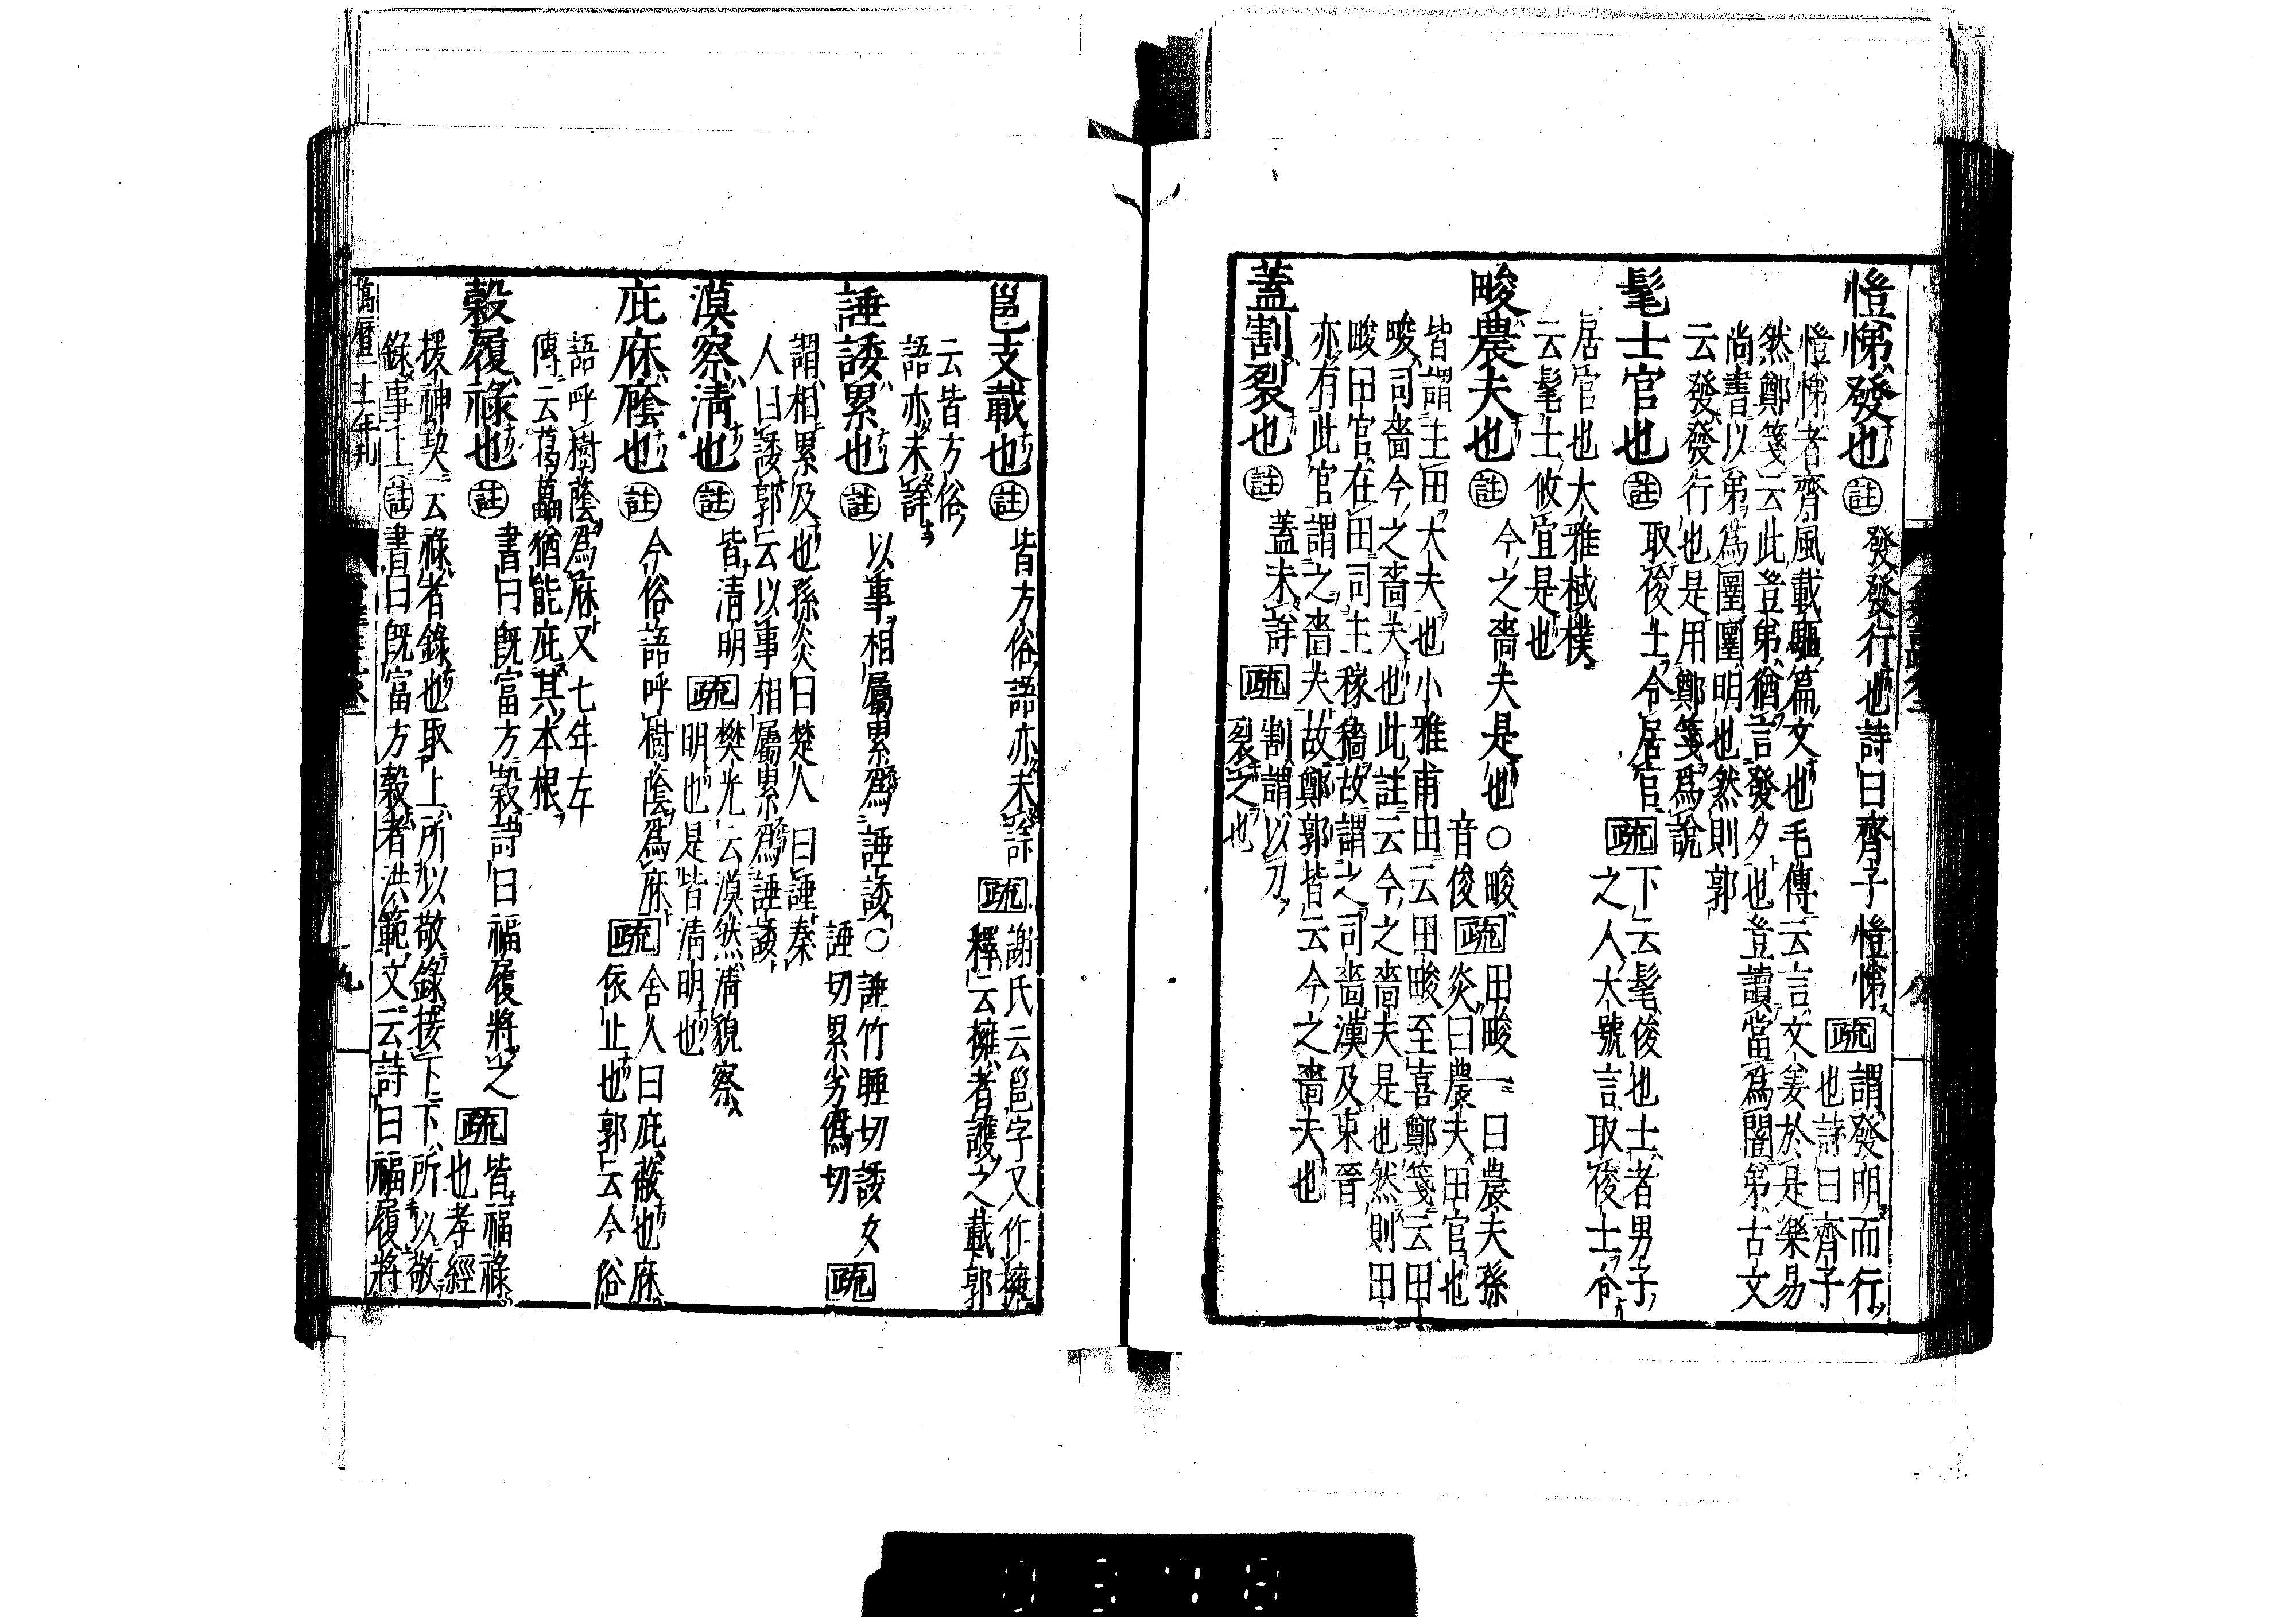 愷悌發也 註 發發行也詩曰齊子愷悌 疏 謂發明而行
也詩曰齊子
愷悌者齊風載驅篇文也毛傳云言文姜於是樂易
然鄭箋云此豈弟猶言發夕也豈讀當爲闓弟古文
尚書以弟爲圛圛明也然則郭
云發發行也是用鄭箋爲說
髦士官也 註 取俊士令居官 疏 下云髦俊也士者男子
之人大號言取俊士令
居官也大雅棫樸
云髦士攸宜是也
畯農夫也 註 今之嗇夫是也○畯
音俊 疏 田畯一曰農夫孫
炎曰農夫田官也
皆謂主田大夫也小雅甫田云田畯至喜鄭箋云田
畯司嗇今之嗇夫也此註云今之嗇夫是也然則田
畯田官在田司主稼穡故謂之司嗇漢及東晉
亦有此官謂之嗇夫故鄭郭皆云今之嗇夫也
蓋割裂也 註 蓋未詳 疏 割謂以刀
裂之也
八
邕支載也 註 皆方俗語亦未詳 疏 謝氏云邕字又作擁
釋云擁者護之載郭
云皆方俗
語亦未詳
諈諉累也 註 以事相屬累爲諈諉○諈竹睡切諉女
諈切累劣僞切 疏
謂相累及也孫炎曰楚人曰諈秦
人曰諉郭云以事相屬累爲諈諉
漠察清也 註 皆清明 疏 樊光云漠然清貌察
明也是皆清明也
庇庥廕也 註 今俗語呼樹蔭爲庥 疏 舍人曰庇蔽也庥
依止也郭云今俗
語呼樹蔭爲庥又七年左
傳云葛藟猶能庇其本根
穀履祿也 註 書曰旣富方穀詩曰福履將之 疏 皆福祿
也孝經
援神契云祿者錄也取上所以敬錄接下下所以敬
錄事上註書曰旣富方穀者洪範文云詩曰福履將
九